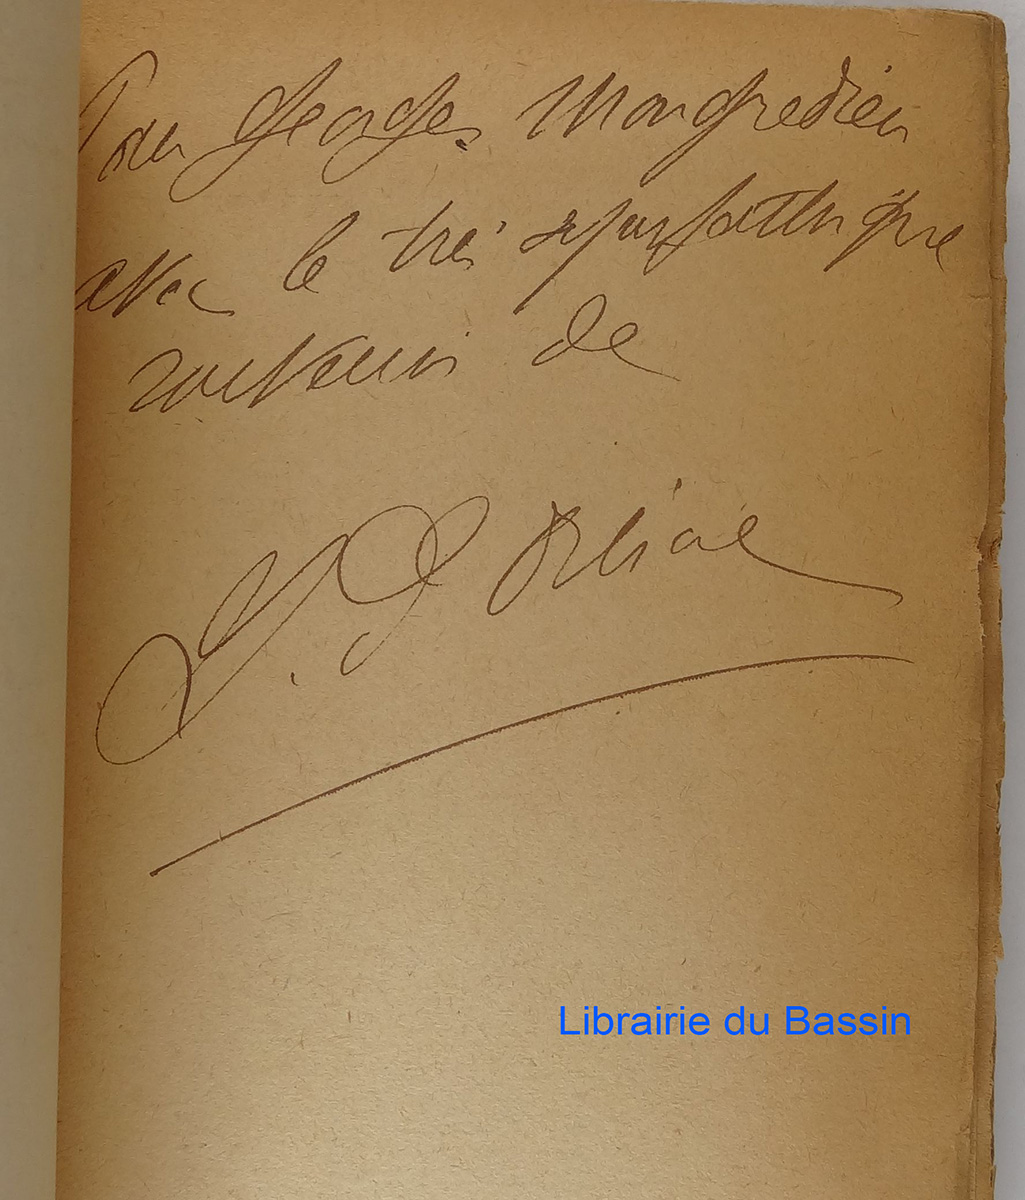 Pour Georges Mongrédien
avec le très sympathique
souvenir de
Librairie du Bassin